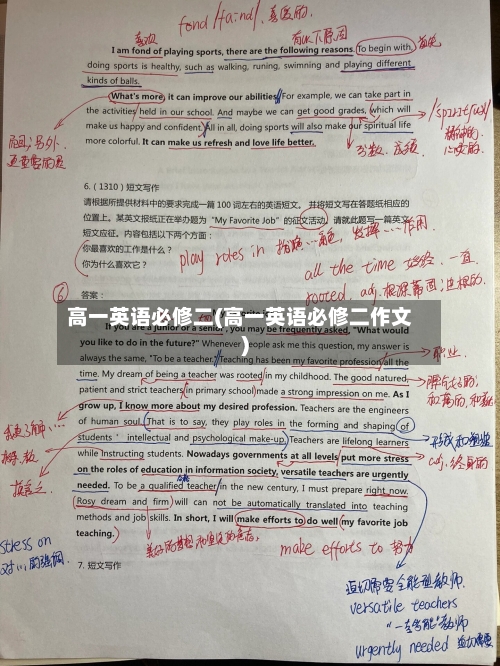 fond /fa:nd/. 喜爱的.
喜欢
有以下原因
I am fond of playing sports, there are the following reasons. To begin with,
首先
doing sports is healthy, such as walking, runing, swimming and playing different
kinds of balls.
What's more, it can improve our abilities. For example, we can take part in
the activities held in our school. And maybe we can get good grades, which will
make us happy and confident. All in all, doing sports will also make our spiritual life
more colorful. It can make us refresh and love life better.
而且;另外.
精神的.
分数、成绩.
6.（1310）短文写作
请根据所提供材料中的要求完成一篇 100 词左右的英语短文。并将短文写在答题纸相应的
位置上。某英文报纸正在举办题为“My Favorite Job”的征文活动。请就此题写一篇英文
短文应征。内容包括以下两个方面：
你最喜欢的工作是什么？
你为什么喜欢它？
play roles in
all the time 始终. 一直
rooted. adj.
6
答案：
高一英语必修二(高一英语必修二作文
)
If you are a junior or a senior, you may be frequently asked, "What would
you like to do in the future?" Whenever people ask me this question, my answer is
always the same, "To be a teacher." Teaching has been my favorite profession all the
time. My dream of being a teacher was rooted in my childhood. The good natured,
patient and strict teachers in primary school made a strong impression on me. As I
grow up, I know more about my desired profession. Teachers are the engineers
of human soul. That is to say, they play roles in the forming and shaping of
students' intellectual and psychological make-up. Teachers are lifelong learners
while instructing students. Nowadays governments at all levels put more stress
on the roles of education in information society, versatile teachers are urgently
needed. To be a qualified teacher in the new century, I must prepare right now.
Rosy dream and firm will can not be automatically translated into teaching
methods and job skills. In short, I will make efforts to do well my favorite job
teaching.
职业.
stress on
make efforts to 努力
7. 短文写作
迫切需要全能型教师.
versatile teachers
urgently needed